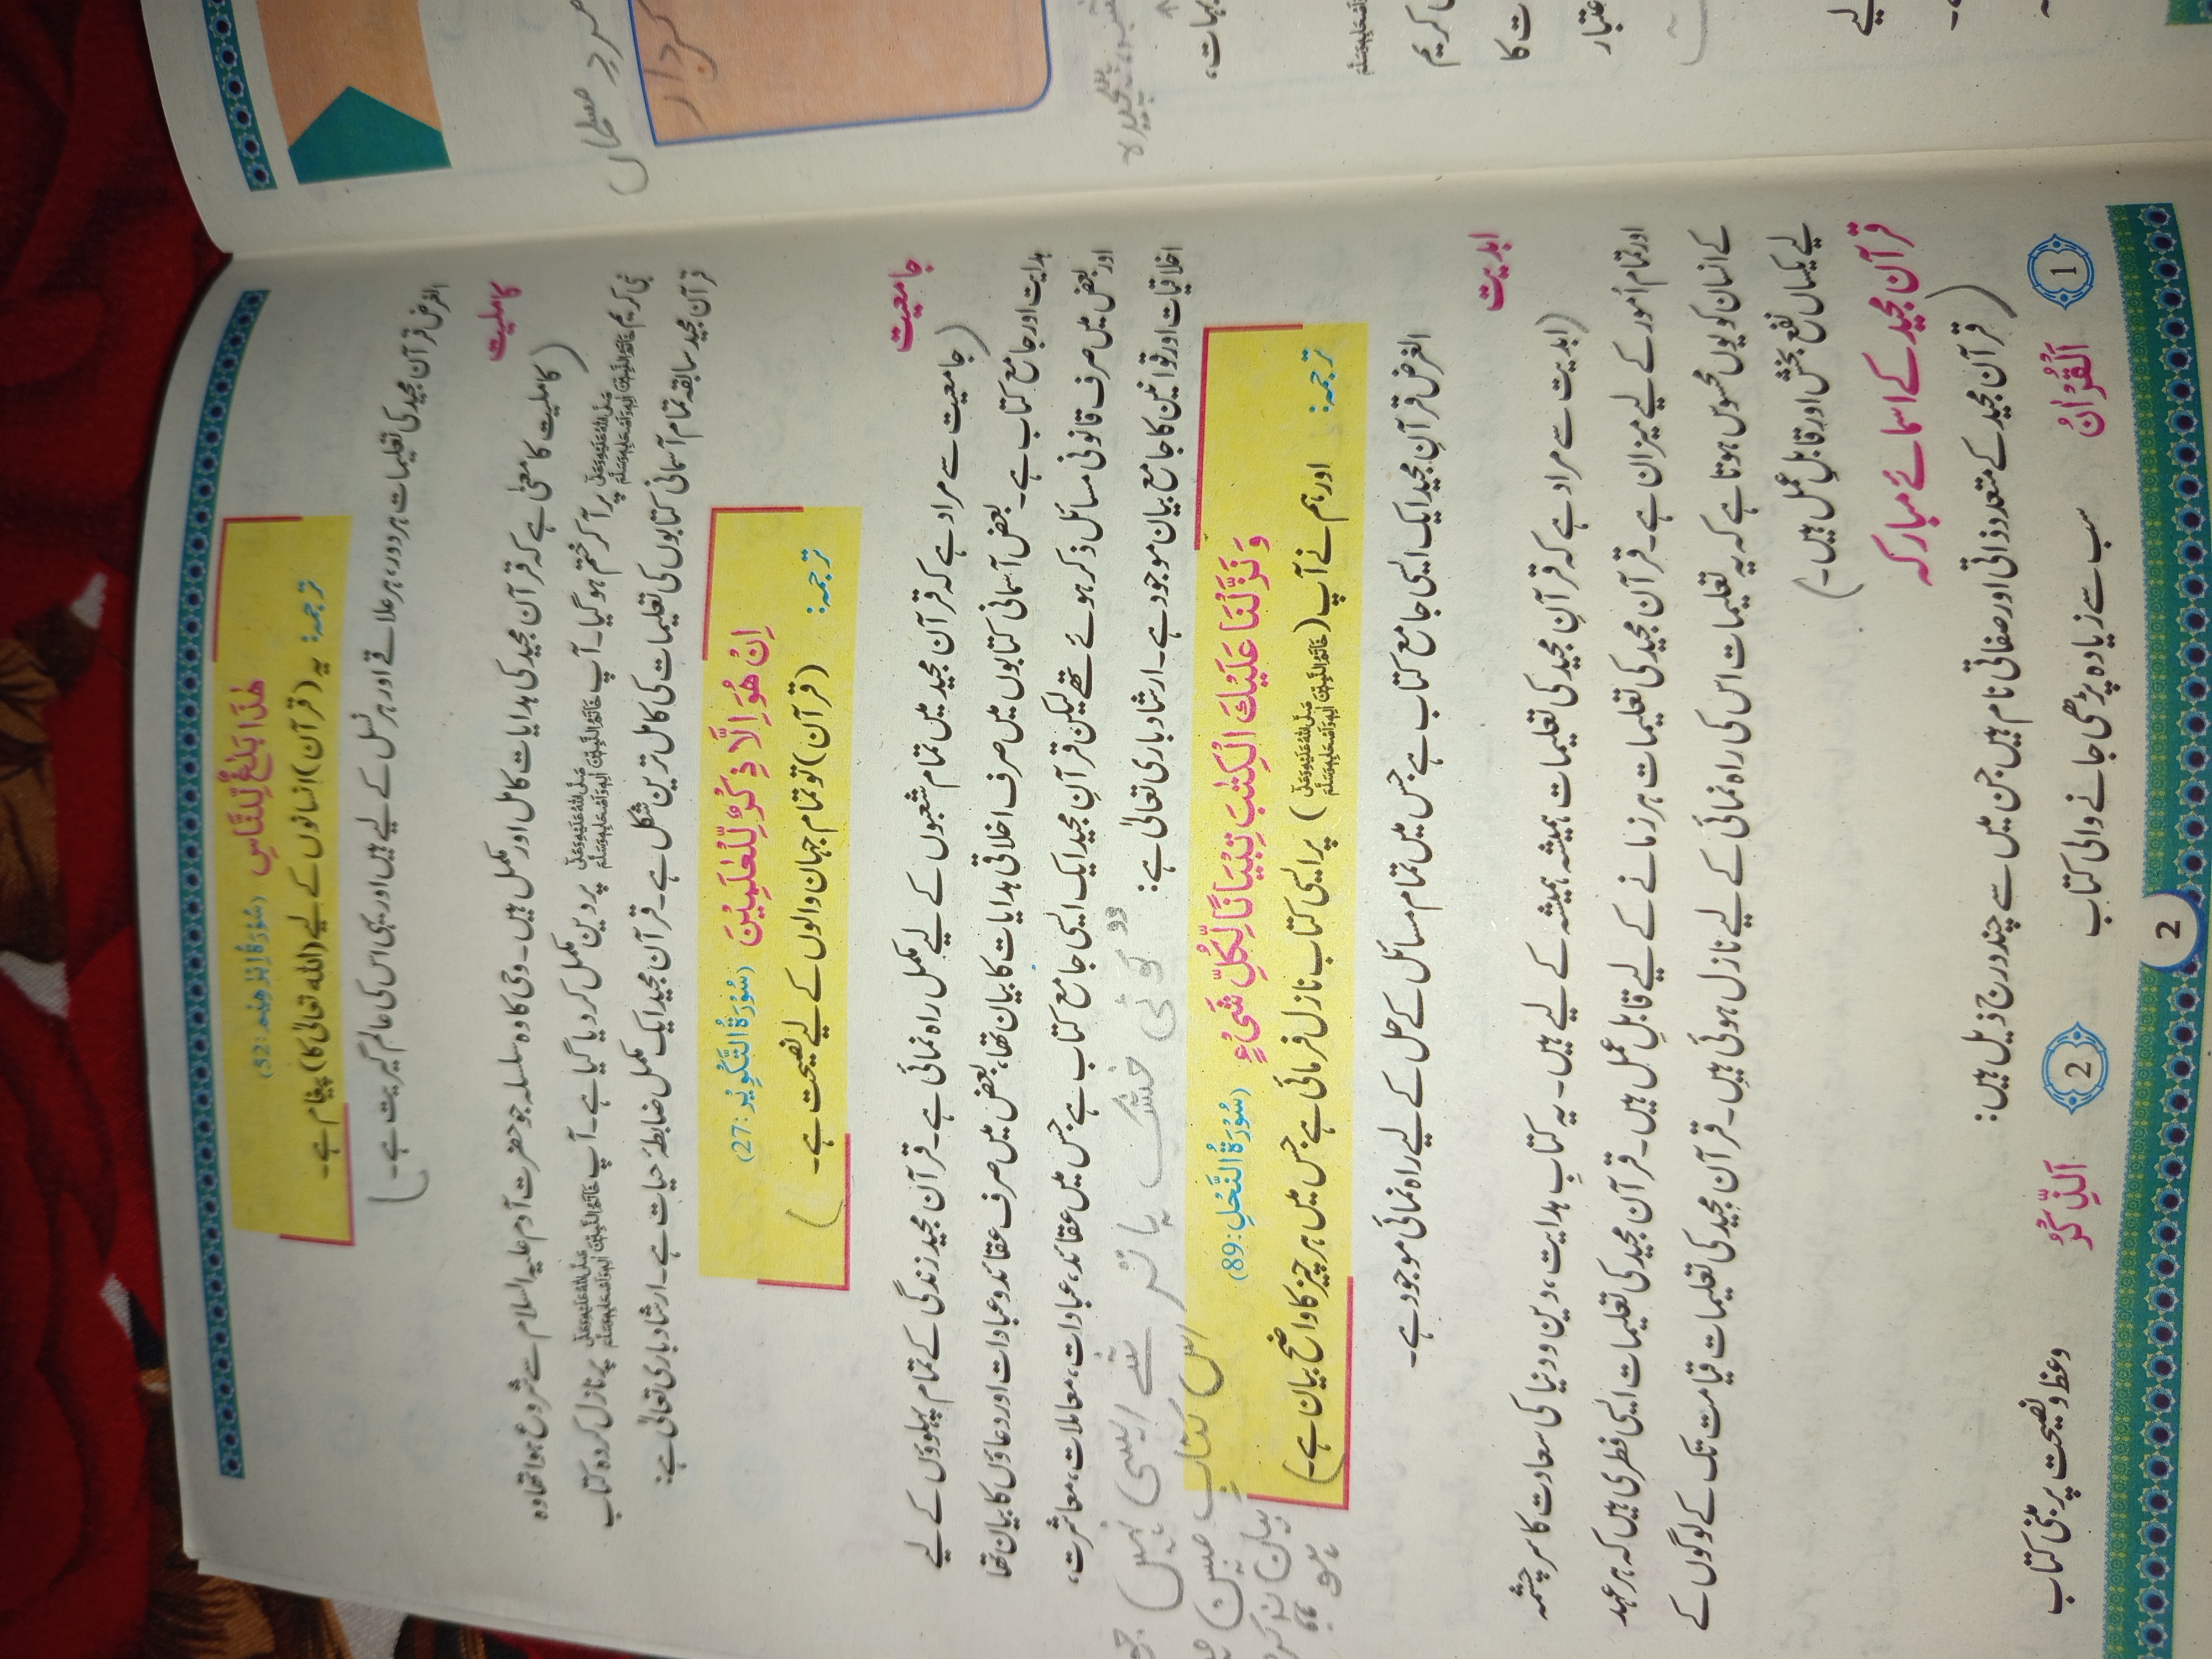 هٰذَا بَلٰغٌ لِّلنَّاسِ (سُوْرَةُ اِبْرٰهِيْم:52)
ترجمہ: یہ (قرآن) انسانوں کے لیے (اللہ تعالیٰ کا) پیغام ہے۔
الغرض قرآن مجید کی تعلیمات ہر دور، ہر علاقے اور ہر نسل کے لیے ہیں اور یہی اس کی عالم گیریت ہے۔)
کاملیت
(کاملیت کا معنی ہے کہ قرآن مجید کی ہدایات کامل اور مکمل ہیں۔ وحی کا وہ سلسلہ جو حضرت آدم علیہ السلام سے شروع ہوا تھا وہ
نبی کریم خَاتَمُ النَّبِيّٖنَ صَلَّى اللهُ عَلَيْهِ وَعَلٰى اٰلِهٖ وَاَصْحَابِهٖ وَسَلَّمَ پر آ کر ختم ہو گیا۔ آپ خَاتَمُ النَّبِيّٖنَ صَلَّى اللهُ عَلَيْهِ وَعَلٰى اٰلِهٖ وَاَصْحَابِهٖ وَسَلَّمَ پر دین مکمل کر دیا گیا ہے۔ آپ خَاتَمُ النَّبِيّٖنَ صَلَّى اللهُ عَلَيْهِ وَعَلٰى اٰلِهٖ وَاَصْحَابِهٖ وَسَلَّمَ پر نازل کردہ کتاب
قرآن مجید سابقہ تمام آسمانی کتابوں کی تعلیمات کی کامل ترین شکل ہے۔ قرآن مجید ایک مکمل ضابطۂ حیات ہے۔ ارشاد باری تعالیٰ ہے:
اِنْ هُوَ اِلَّا ذِكْرٌ لِّلْعٰلَمِيْنَ (سُوْرَةُ التَّكْوِيْر:27)
ترجمہ: (قرآن) تو تمام جہان والوں کے لیے نصیحت ہے۔)
جامعیت
(جامعیت سے مراد ہے کہ قرآن مجید میں تمام شعبوں کے لیے مکمل راہ نمائی ہے۔ قرآن مجید زندگی کے تمام پہلوؤں کے لیے
ہدایت اور جامع کتاب ہے۔ بعض آسمانی کتابوں میں صرف اخلاقی ہدایات کا بیان تھا، بعض میں صرف عقائد و عبادات اور دعاؤں کا بیان تھا
اور بعض میں صرف قانونی مسائل ذکر ہوئے تھے لیکن قرآنِ مجید ایک ایسی جامع کتاب ہے جس میں عقائد، عبادات، معاملات، معاشرت،
اخلاقیات اور قوانین کا جامع بیان موجود ہے۔ ارشاد باری تعالیٰ ہے:
"کوئی خشک یا تر شے ایسی نہیں
کتابِ مبین
وَنَزَّلْنَا عَلَيْكَ الْكِتٰبَ تِبْيَانًا لِّكُلِّ شَيْءٍ (سُوْرَةُ النَّحْلِ:89)
ترجمہ: اور ہم نے آپ (خَاتَمُ النَّبِيّٖنَ صَلَّى اللهُ عَلَيْهِ وَعَلٰى اٰلِهٖ وَاَصْحَابِهٖ وَسَلَّمَ) پر ایسی کتاب نازل فرمائی ہے جس میں ہر چیز کا واضح بیان ہے۔)
الغرض قرآنِ مجید ایک ایسی جامع کتاب ہے جس میں تمام مسائل کے حل کے لیے راہ نمائی موجود ہے۔
ابدیت
(ابدیت سے مراد ہے کہ قرآنِ مجید کی تعلیمات ہمیشہ ہمیشہ کے لیے ہیں۔ یہ کتابِ ہدایت، دین و دنیا کی سعادت کا سرچشمہ
اور تمام اُمور کے لیے میزان ہے۔ قرآن مجید کی تعلیمات ہر زمانے کے لیے قابلِ عمل ہیں۔ قرآن مجید کی تعلیمات ایسی فطری ہیں کہ ہر عہد
کے انسان کو یوں محسوس ہوتا ہے کہ یہ تعلیمات اس کی راہ نمائی کے لیے نازل ہوئی ہیں۔ قرآن مجید کی تعلیمات قیامت تک کے لوگوں کے
لیے یکساں نفع بخش اور قابلِ عمل ہیں۔)
قرآن مجید کے اسمائے مبارکہ
(قرآن مجید کے متعدد ذاتی اور صفاتی نام ہیں جن میں سے چند درج ذیل ہیں:
1 اَلْقُرْاٰنُ سب سے زیادہ پڑھی جانے والی کتاب 2 اَلذِّكْرُ وعظ و نصیحت پر مبنی کتاب
2
کردار